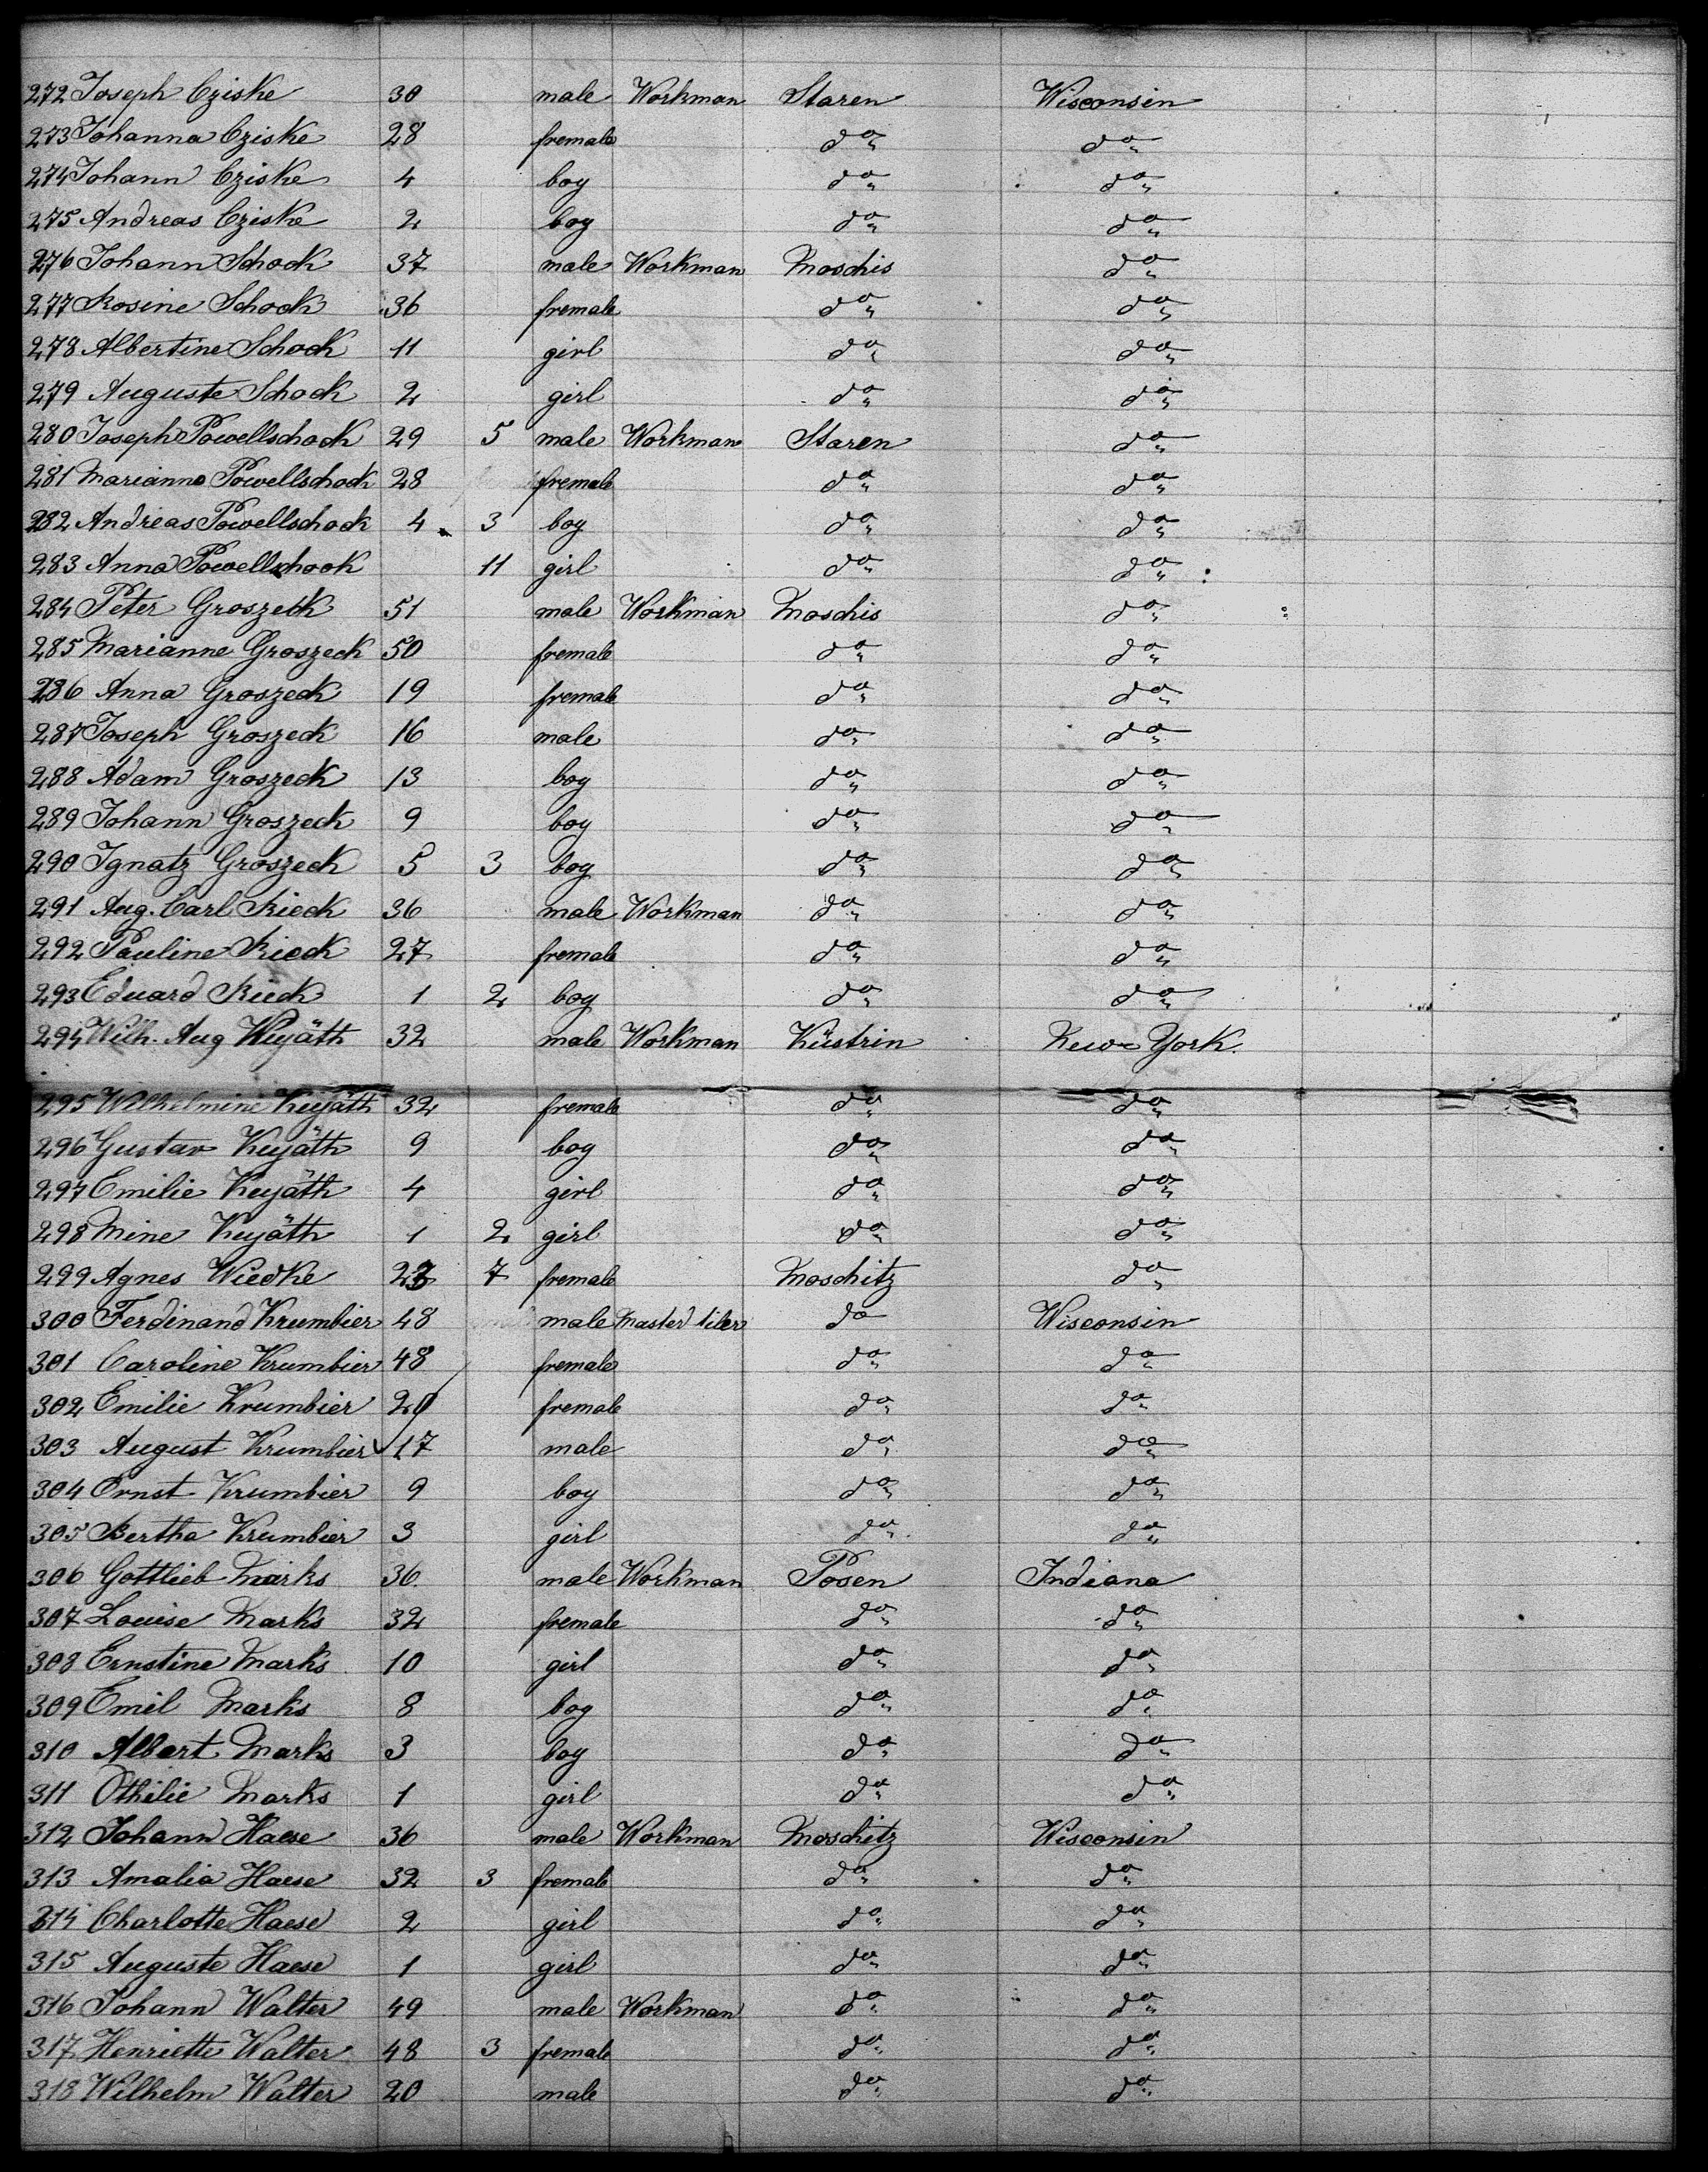 272 Joseph Cziske 30 male Workman Staren Wisconsin
273 Johanna Cziske 28 fremale do" do"
274 Johann Cziske 4 boy do" do"
275 Andreas Cziske 2 boy do" do"
276 Johann Schock 37 male Workman Moschis do"
277 Rosine Schock 36 fremale do" do"
278 Albertine Schock 11 girl do" do"
279 Auguste Schock 2 girl do" do"
280 Joseph Powellschock 29 5 male Workman Staren do"
281 Marianne Powellschock 28 fremale do" do"
282 Andreas Powellschock 4 3 boy do" do"
283 Anna Powellschock 11 girl do" do"
284 Peter Groszeck 51 male Workman Moschis do"
285 Marianne Groszeck 50 fremale do" do"
286 Anna Groszeck 19 fremale do" do"
287 Joseph Groszeck 16 male do" do"
288 Adam Groszeck 13 boy do" do"
289 Johann Groszeck 9 boy do" do"
290 Ignatz Groszeck 5 3 boy do" do"
291 Aug. Carl Rieck 36 male Workman do" do"
292 Pauline Rieck 27 fremale do" do"
293 Eduard Rieck 1 2 boy do" do"
294 Wilh. Aug Kujäth 32 male Workman Küstrin New York.
295 Wilhelmine Kujäth 32 fremale do" do"
296 Gustav Kujäth 9 boy do" do"
297 Emilie Kujäth 4 girl do" do"
298 Mine Kujäth 1 2 girl do" do"
299 Agnes Wiedke 7 fremale Moschitz do"
300 Ferdinand Krumbier 48 male Master tiler do Wisconsin
301 Caroline Krumbier 48 fremale do" do"
302 Emilie Krumbier 20 fremale do" do"
303 August Krumbier 17 male do" do"
304 Ernst Krumbier 9 boy do" do"
305 Bertha Krumbier 3 girl do" do"
306 Gottlieb Marks 36 male Workman Posen Indiana
307 Louise Marks 32 fremale do" do"
308 Ernstine Marks 10 girl do" do"
309 Emil Marks 8 boy do" do"
310 Albert Marks 3 boy do" do"
311 Othilie Marks 1 girl do" do"
312 Johann Haese 36 male Workman Moschitz Wisconsin
313 Amalia Haese 32 3 fremale do" do"
314 Charlotte Haese 2 girl do" do"
315 Auguste Haese 1 girl do" do"
316 Johann Walter 49 male Workman do" do"
317 Henriette Walter 48 3 fremale do" do"
318 Wilhelm Walter 20 male do" do"